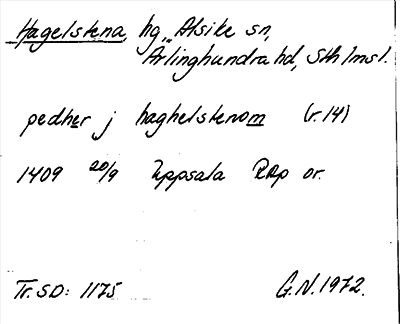 Hagelstena, hg, Alsike sn,
Ärlinghundra hd, Sth lmsl.
pedher j haghelstenom (r. 14)
1409 20/9 Uppsala RAp or.
Tr. SD: 1175
G.N. 1972.